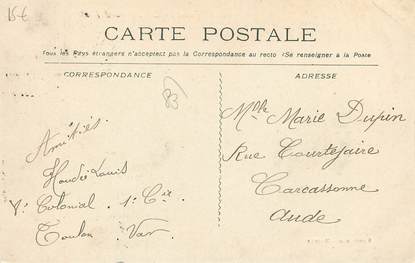 15€
CARTE POSTALE
Tous les Pays étrangers n'acceptent pas la Correspondance au recto (Se renseigner à la Poste
CORRESPONDANCE
83
Amitiés.
Louis
Colonial . 1º Cie.
Toulon . Var
ADRESSE
Mlle Marie Dupin
Rue Courtejaire
Carcassonne
Aude